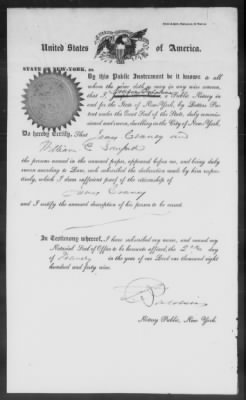 United States of America.
STATE OF NEW-YORK, ss.
By this Public Instrument be it known to all
whom the same doth or may in any wise concern,
that I, a Public Notary in
and for the State of New-York, by Letters Pa-
tent under the Great Seal of the State, duly commis-
sioned and sworn, dwelling in the City of New-York,
Do hereby Certify, That Isaac and
William C.
the persons named in the annexed papers, appeared before me, and being duly
sworn according to Law, each subscribed the declaration made by him respec-
tively, which I deem sufficient proof of the citizenship of
Isaac
and I certify the annexed description of his person to be correct.
In Testimony whereof, I have subscribed my name, and caused my
Notarial Seal of Office to be hereunto affixed, the 2nd day
of in the year of our Lord one thousand eight
hundred and forty nine.
Notary Public, New York.